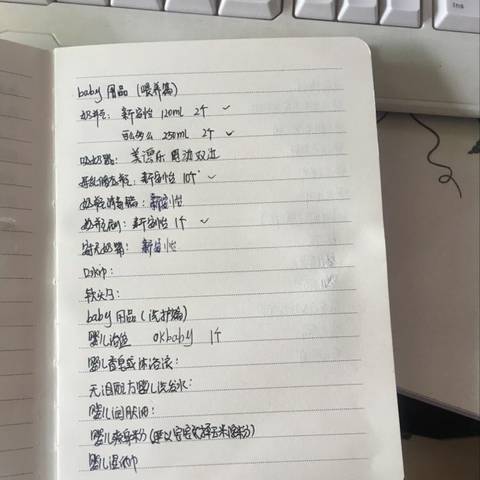 baby 用品 (喂养篇)
奶瓶: 新安怡 120ml 2个 ✓
可么多么 250ml 2个 ✓
吸奶器: 美德乐 电动双边
母乳储存瓶: 新安怡 10个 ✓
奶瓶消毒锅: 新安怡
奶瓶刷: 新安怡 1个 ✓
安抚奶嘴: 新安怡
口水巾:
软头勺:
baby 用品 (洗护篇)
婴儿浴盆 okbaby 1个
婴儿香皂或沐浴液:
无泪配方婴儿洗发水:
婴儿润肤油:
婴儿爽身粉 (建议 选择玉米 粉)
婴儿湿纸巾
Ins